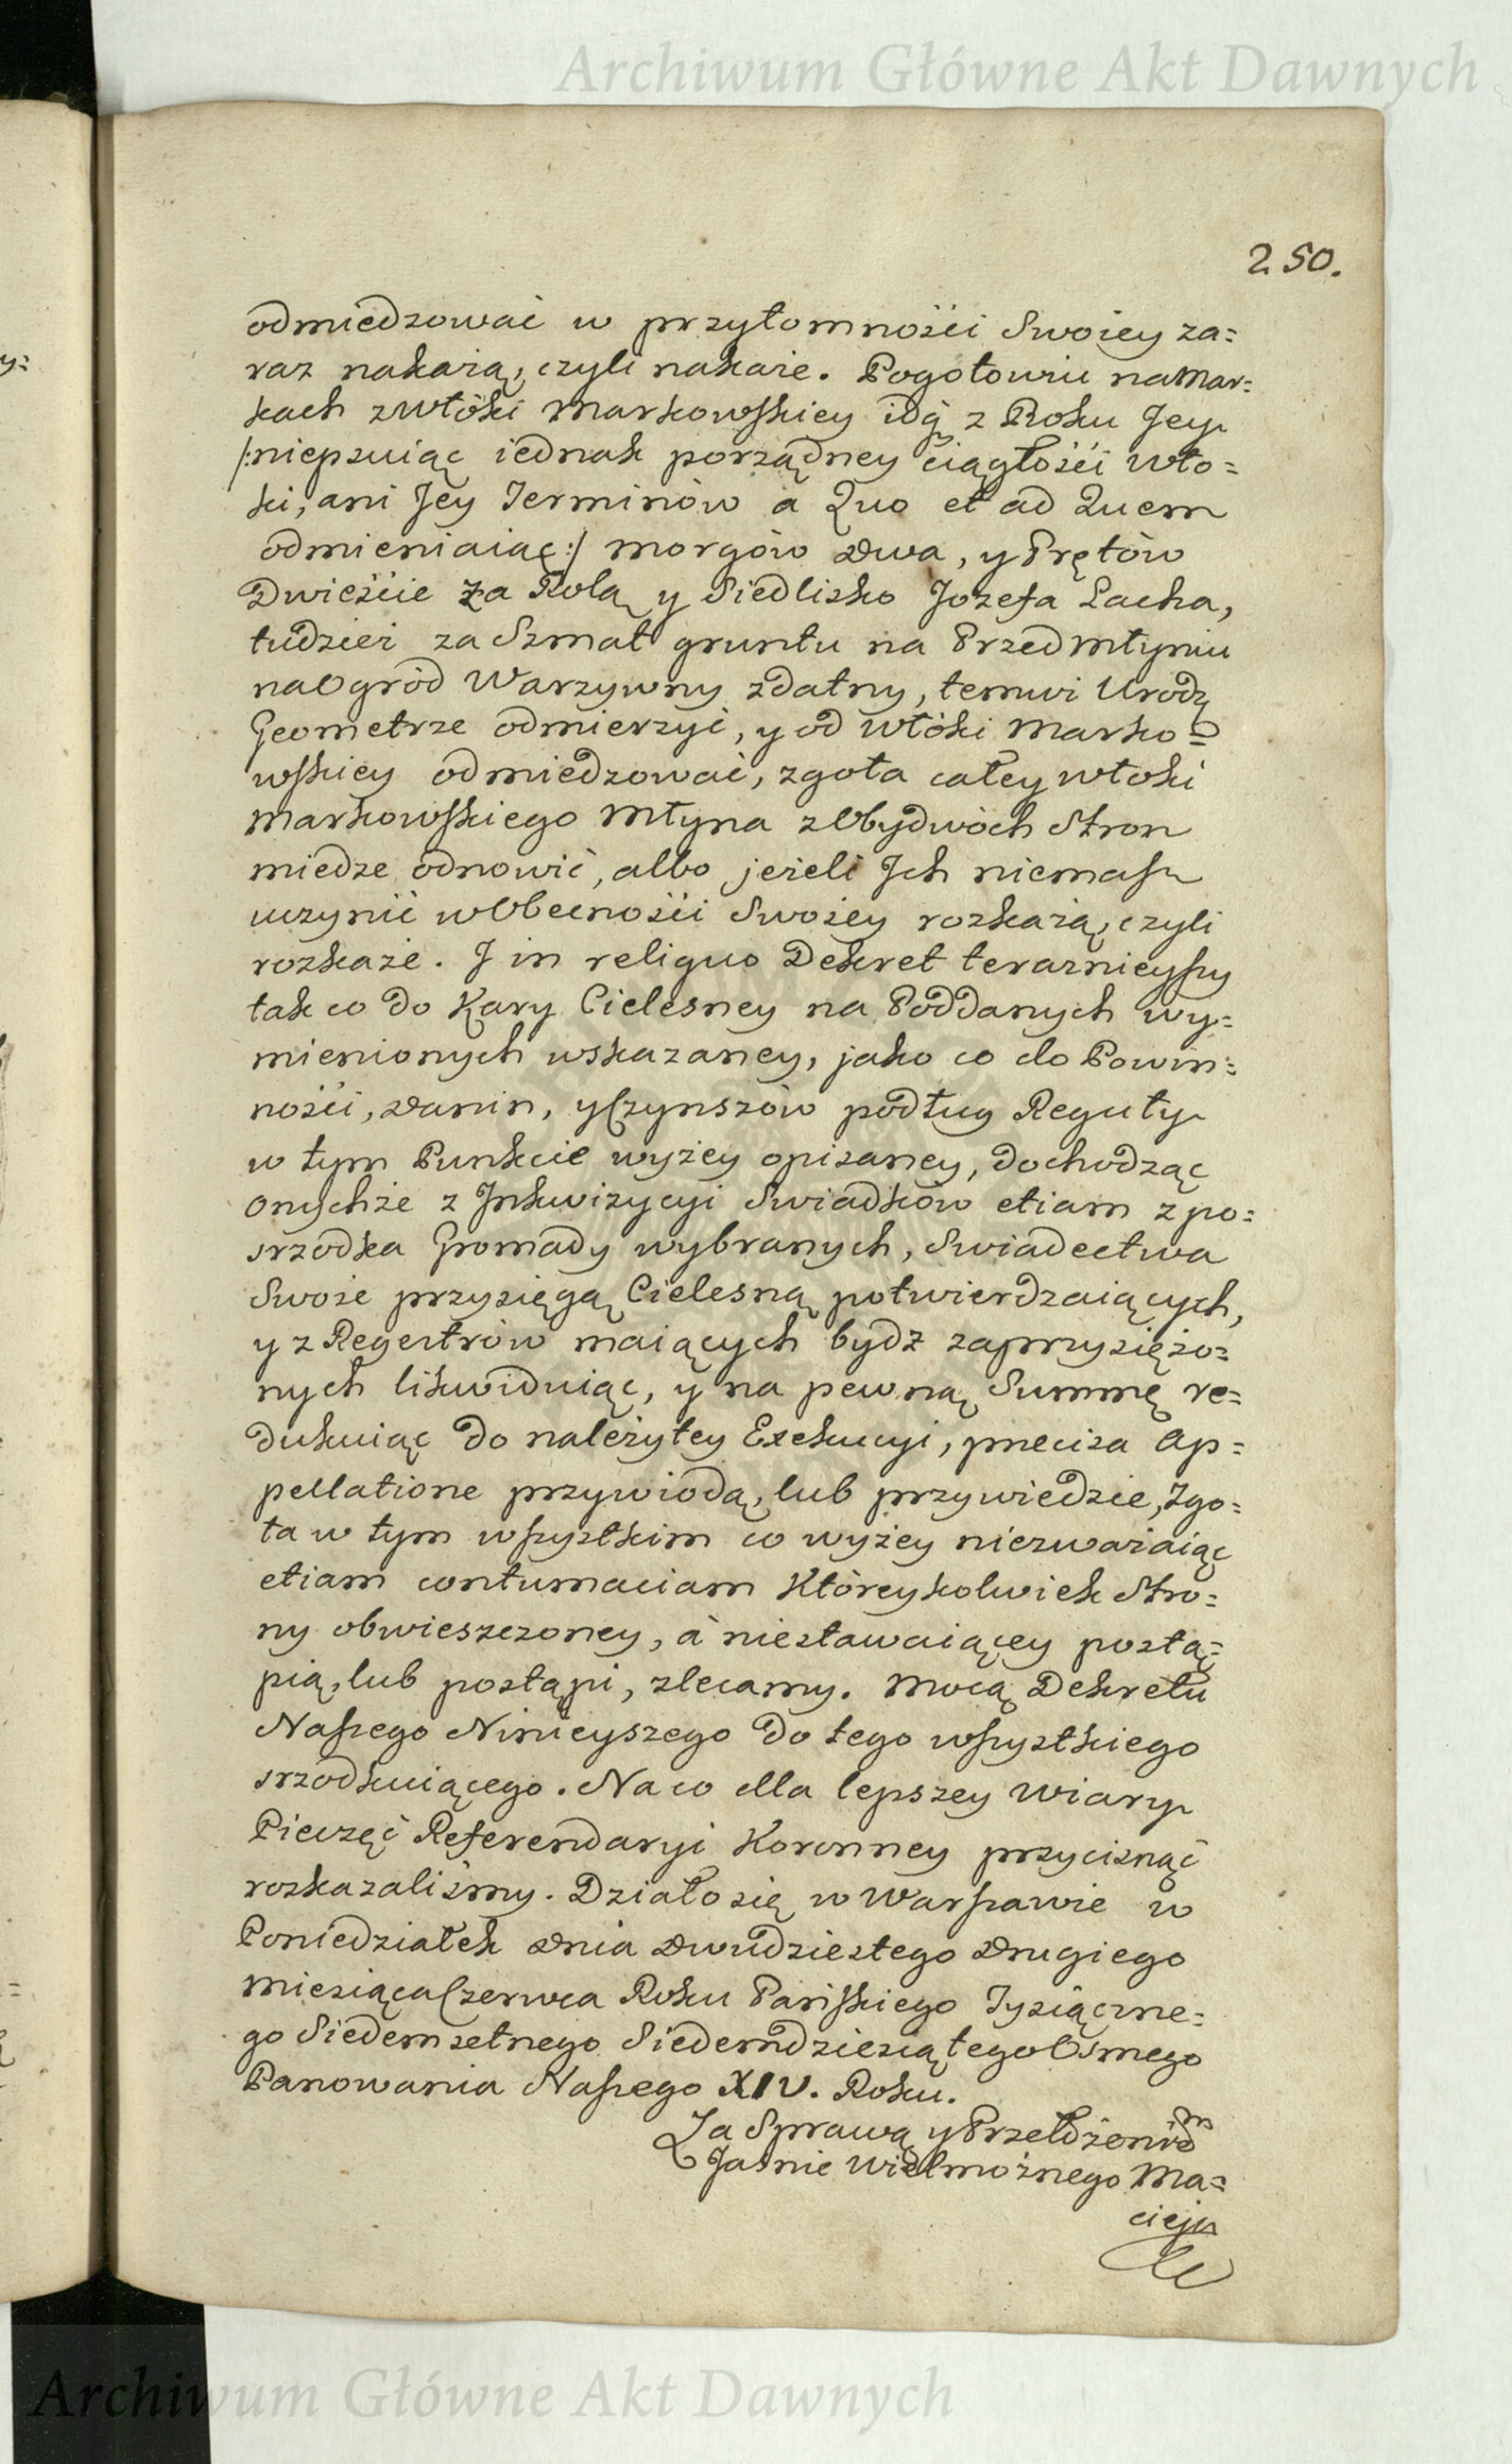 Archiwum Główne Akt Dawnych
250.
odmiedzować w przytomności Swoiey za=
raz nakażą, czyli nakaże. Pogotowiu na Mar=
kach z włóki Markowskiey idą z Roku Jey
/:niepsuiąc iednak porządney ciągłości wło=
ki, ani Jey Terminów a Quo et ad Quem
odmieniaiąc:/ morgów dwa, y Prętów
Dwieście za Rolą y Siedlisko Jozefa Lacha,
tudzież za Szmat gruntu na Przedmłyniu
na Ogród Warzywny zdatny, temuż Urodz
Geometrze odmierzyć, y od włóki Marko=
wskiey odmiedzować, zgoła całey włoki
Markowskiego Młyna z Obydwóch Stron
miedze odnowić, albo jeżeli Jch niemasz
uczynić w Obecności Swoiey rozkażą, czyli
rozkaże. J in reliquo Dekret terazniejszy
tak co do Kary Cielesney na Poddanych wy=
mienionych wskazaney, jako co do Powin=
ności, danin, y Czynszów podług Reguły
w tym Punkcie wyżey opisaney, dochodząc
onychże z Jnkwizycyi Swiadków etiam z po=
srzodka Gromady wybranych, Swiadectwa
Swoie przysięgą Cielesną potwierdzaiących,
y z Regestrów maiących bydź zaprzysiężo=
nych likwiduiąc, y na pewną Summę re=
dukuiąc do należytey Exekucyi, precisa Ap=
pellatione przywiodą, lub przywiedzie, Zgo=
ła w tym wszystkim co wyżey niezważaiąc
etiam contumaciam Któreykolwiek Stro=
ny obwieszczoney, à niestawaiącey postą=
pią, lub postąpi, zlecamy. Mocą Dekretu
Naszego Ninieyszego do tego wszystkiego
srzodkuiącego. Na co dla lepszey wiary
Pieczęć Referendaryi Koronney przycisnąć
rozkazaliśmy. Działo się w Warszawie w
Poniedziałek dnia dwudziestego drugiego
Miesiąca Czerwca Roku Pańskiego Tysiączne=
go Siedemsetnego Siedemdziesiątego Osmego
Panowania Naszego XIV. Roku.
Za Sprawą y Przełożeniem
Jasnie Wielmożnego Ma=
cieja
Archiwum Główne Akt Dawnych